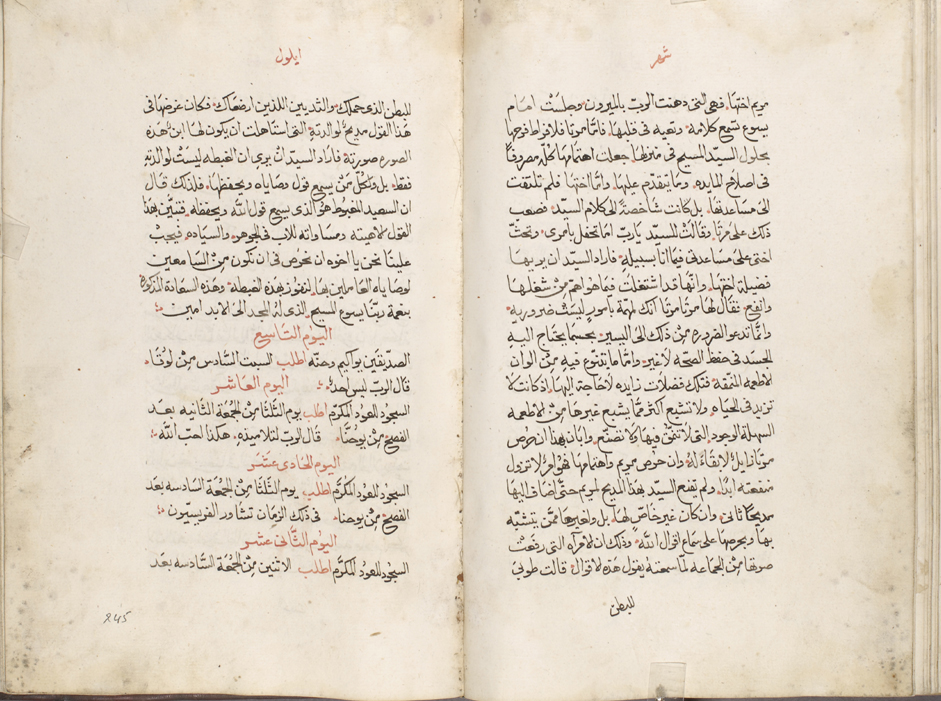 شهر
مريم اختها. فهي التي دهنت الرب بالميرون وجلست امام
يسوع تسمع كلامه وتعيه في قلبها. فاما مرتا فلافراط فرحها
بحلول السيد المسيح في منزلها جعلت اهتمامها كله مصروفًا
في اصلاح المايده. وما يتقدم عليها. واما اختها فلم تلتفت
الى مساعدتها. بل كانت شاخصةً الى كلام السيد. فصعب
ذلك على مرتا وقالت للسيد يارب اما تحفل بامري. وتحث
اختي على مساعدتي فيما انا بسبيله فاراد السيد ان يريها
فضيلة اختها. وانها قد اشتغلت فيما هو اهم من شغلها
وانفع. فقال لها مرتا مرتا انك لمهتمة بامور ليست ضروريه
وانما تدعو الضروره من ذلك الى اليسير بحسبما يحتاج اليه
الجسد في حفظ الصحه لا غير. واما ما يتنوع فيه من الوان
الاطعمه المنمقه فتلك فضلات زايده لا حاجة اليها. اذ كانت لا
تزيد في الحياه. ولا تشبع اكثر مما يشبع غيرها من الاطعمه
السهلة الوجود التي لا تنمق فيها ولا تصنع. وابان بهذا ان حرص
مرتا زايل لا بقاء له وان حرص مريم واهتمامها هو امر لا تزول
منفعته ابدًا. ولم يقنع السيد بهذا المديح لمريم حتى اضاف اليها
مديحًا ثاني. وان كان غير خاص لها. بل ولغيرها ممن يتشبه
بها وبحرصها على سماع اقوال الله وذلك ان الامراه التي رفعت
صوتها من الجماعه لما سمعته يقول هذه الاقوال قالت طوبى
للبطن
ايلول
للبطن الذي حملك والثديين اللذين ارضعاك فكان غرضها في
هذا القول مديحٌ لوالدته التي استاهلت ان يكون لها ابن هذه
الصوره صورته فاراد السيد ان يري ان الغبطه ليست لوالدته
فقط بل ولكل من يسمع قول وصاياه ويحفظها. فلذلك قال
ان السعيد المغبوط هو الذي يسمع قول الله ويحفظه. فتبين بهذا
القول لاهيته ومساواته للاب في الجوهر والسياده. فيجب
علينا نحن يا اخوه ان نحرص في ان نكون من السامعين
لوصاياه العاملين بها. لنفوز بهذه الغبطه وهذه السعادة المذكورة
بنعمة ربنا يسوع المسيح الذي له المجد الى الابد امين
اليوم التاسع
الصديقين يواكيم وحنه اطلب السبت السادس من لوقا.
قال الرب ليس احد اليوم العاشر
السجود للعود المكرم اطلب يوم الثلثا من الجمعة الثانيه بعد
الفصح من يوحنا. قال الرب لتلاميذه هكذا احب الله
اليوم الحادي عشر
السجود للعود المكرم اطلب يوم الثلثا من الجمعة السادسه بعد
الفصح من يوحنا. في ذلك الزمان تشاور الفريسيون
اليوم الثاني عشر
السجود للعود المكرم اطلب الاثنين من الجمعة السادسه بعد
245